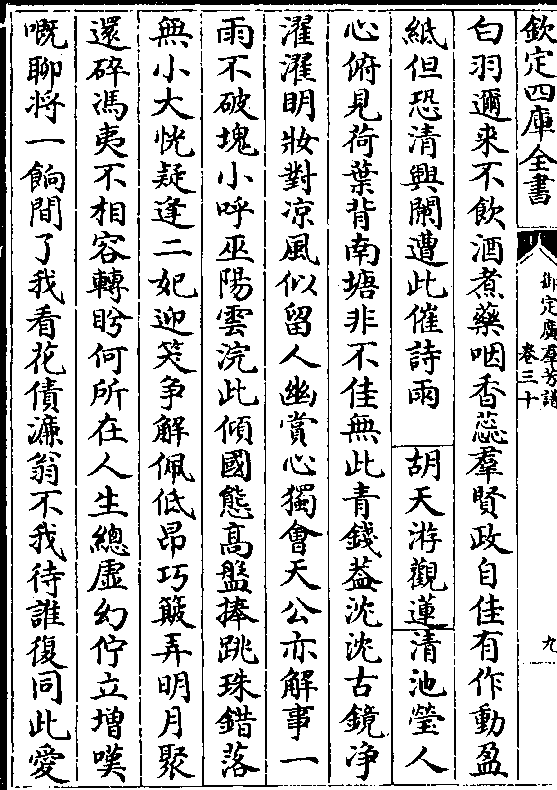 欽定四庫全書
御定廣羣芳譜
卷三十
九
白羽邇来不飲酒煮藥咽香蕊羣賢政自佳有作動盈
紙但恐清興闌遭此催詩雨 胡天游觀蓮清池瑩人
心俯見荷葉背南塘非不佳無此青錢葢沈沈古鏡净
濯濯明妝對凉風似留人幽賞心獨會天公亦解事一
雨不破塊小呼巫陽雲浣此傾國態高盤捧跳珠錯落
無小大恍疑逢二妃迎笑争解佩低昂巧簸弄明月聚
還碎馮夷不相容轉盻何所在人生總虚幻佇立增嘆
嘅聊将一餉間了我看花債濂翁不我待誰復同此愛